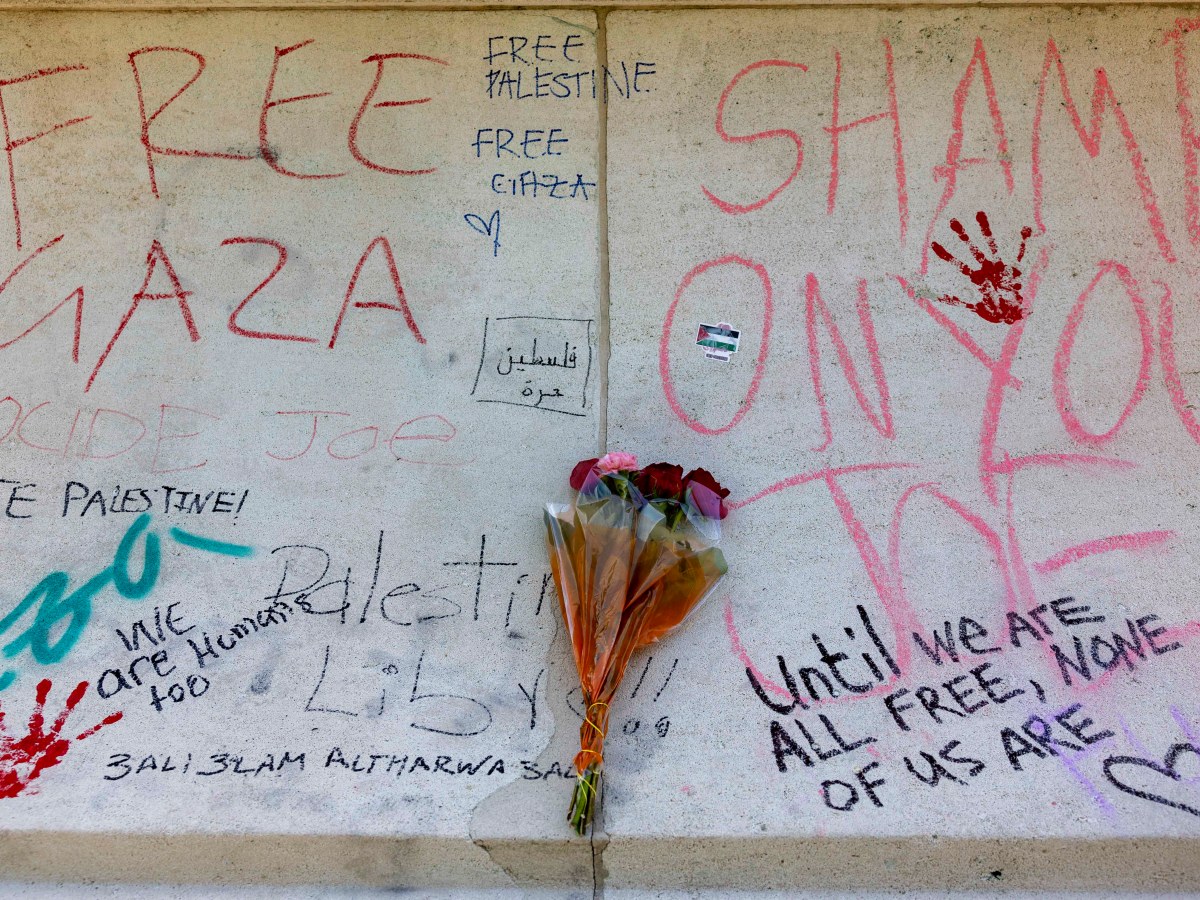 FREE
GAZA
FREE
PALESTINE
FREE
GAZA
فلسطين
حرة
OCIDE Joe
TE PALESTINE!
WE
are Humans
too
Palestin
Libre!!
3ALI 3LAM ALTHARWA 3AL
SHAME
ON YOU
JOE
Until we ATE
ALL FREE, NONE
OF US ARE